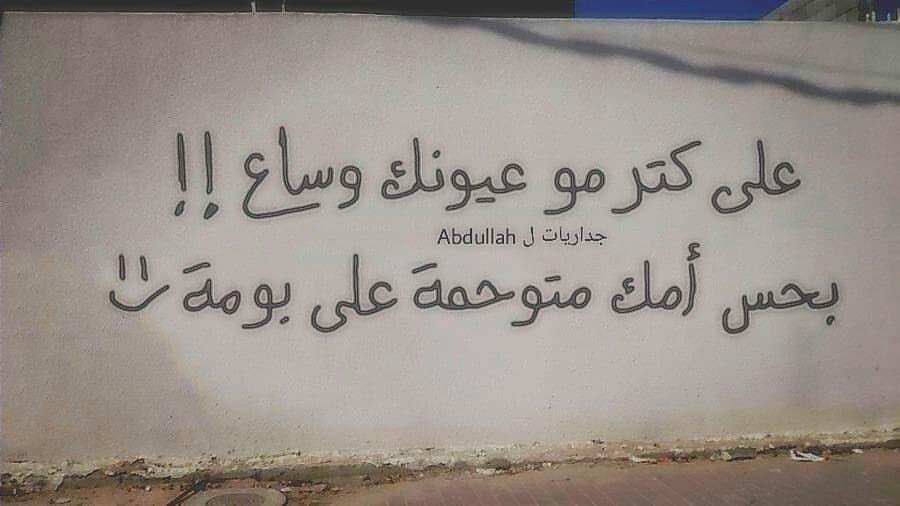 على كتر مو عيونك وساع !!
جداريات ل Abdullah
بحس أمك متوحمة على بومة "